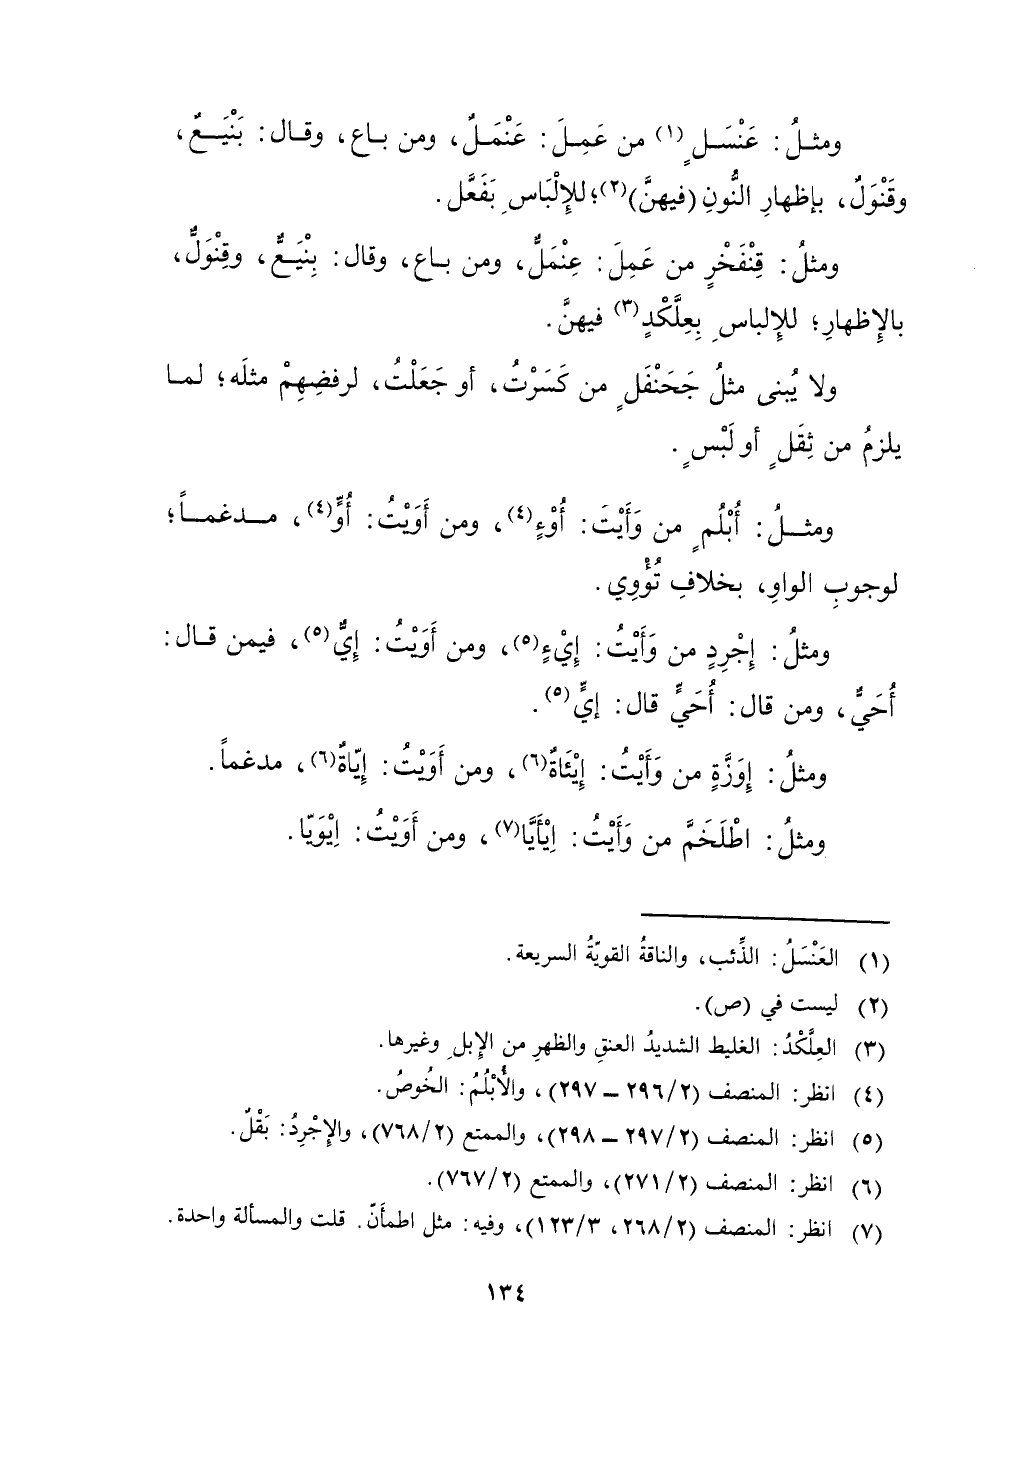 ومثلُ: عَنْسَلٍ(١) من عَمِلَ: عَنْمَلٌ، ومن باع، وقال: بَنْيَعٌ،
وقَنْوَلٌ، بإظهارِ النُّونِ (فيهنَّ)(٢)؛ للإِلْبَاسِ بَفَعَّل.
ومثلُ: قِنْفَخْرٍ من عَمِلَ: عِنْمَلٌّ، ومن باع، وقال: بِنْيَعٌّ، وقِنْوَلٌّ،
بالإِظهارِ؛ للإِلباسِ بِعِلَّكْدٍ(٣) فيهنَّ.
ولا يُبنى مثلُ جَحَنْفَلٍ من كَسَرْتُ، أو جَعَلْتُ، لرفضِهِمْ مثلَه؛ لما
يلزمُ من ثِقَلٍ أو لَبْسٍ.
ومثلُ: أُبْلُمٍ من وَأَيْتَ: أُوْءٍ(٤)، ومن أَوَيْتُ: أُوٍّ(٤)، مدغماً؛
لوجوبِ الواوِ، بخلافِ تُؤْوِي.
ومثلُ: إِجْرِدٍ من وَأَيْتُ: إِيْءٍ(٥)، ومن أَوَيْتُ: إِيٌّ(٥)، فيمن قال:
أُحَيٌّ، ومن قال: أُحَيٍّ قال: إيٍّ(٥).
ومثلُ: إِوَزَّةٍ من وَأَيْتُ: إِيْئَاةٌ(٦)، ومن أَوَيْتُ: إِيّاةٌ(٦)، مدغماً.
ومثلُ: اطْلَخَمَّ من وَأَيْتُ: اِيْأَيَّا(٧)، ومن أَوَيْتُ: اِيْوَيّا.
(١) العَنْسَلُ: الذِّئب، والناقةُ القويّةُ السريعة.
(٢) ليست في (ص).
(٣) العِلَّكْدُ: الغليط الشديدُ العنقِ والظهرِ من الإِبلِ وغيرها.
(٤) انظر: المنصف (٢/٢٩٦ – ٢٩٧)، والأُبْلُمُ: الخُوصُ.
(٥) انظر: المنصف (٢/٢٩٧ – ٢٩٨)، والممتع (٢/٧٦٨)، والإِجْرِدُ: بَقْلٌ.
(٦) انظر: المنصف (٢/٢٧١)، والممتع (٢/٧٦٧).
(٧) انظر: المنصف (٢/٢٦٨، ٣/١٢٣)، وفيه: مثل اطمأنّ. قلت والمسألة واحدة.
١٣٤